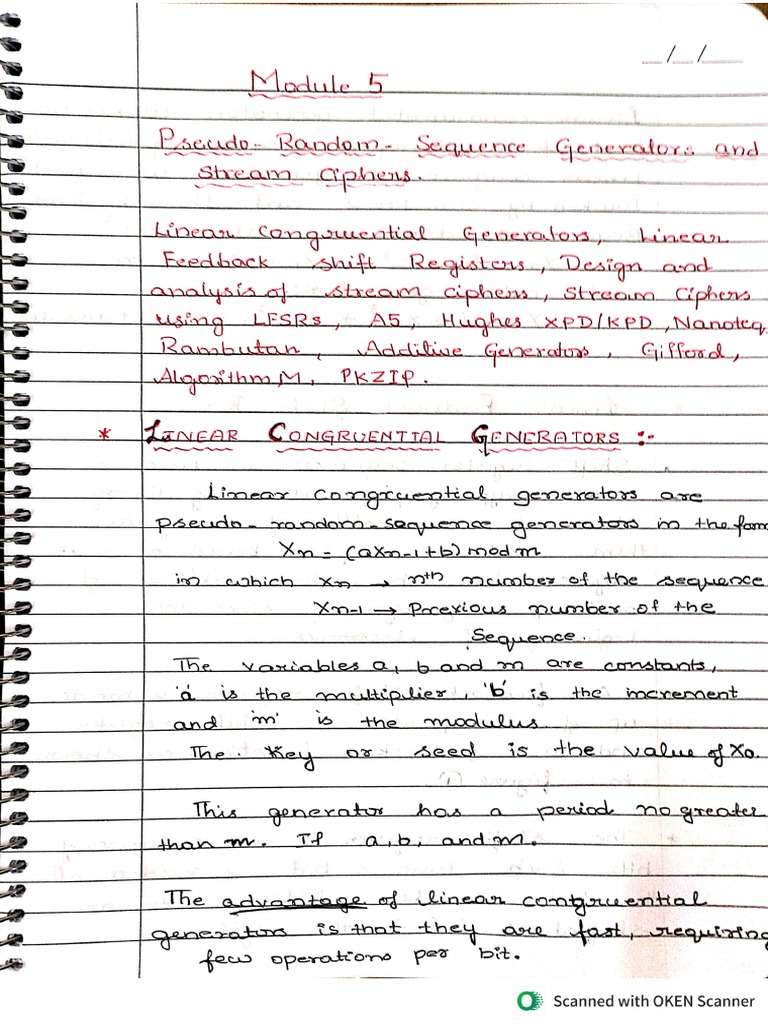 _/_/_
Module 5
Pseudo-Random-Sequence Generators and
Stream Ciphers.
Linear Congruential Generators, Linear
Feedback shift Registers, Design and
analysis of stream ciphers, Stream Ciphers
using LFSRs, A5, Hughes XPD/KPD, Nanoteq,
Rambutan, Additive Generators, Gifford,
Algorithm M, PKZIP.
* LINEAR CONGRUENTIAL GENERATORS :-
Linear congruential generators are
pseudo-random-sequence generators in the form
Xn = (aXn-1+b) mod m
in which Xn → nth number of the sequence
Xn-1 → Previous number of the
Sequence.
The variables a, b and m are constants,
'a' is the multiplier, 'b' is the increment
and 'm' is the modulus.
The key or seed is the value of X0.
This generator has a period no greater
than m. If a, b, and m.
The advantage of linear congruential
generators is that they are fast, requiring
few operations per bit.
Scanned with OKEN Scanner